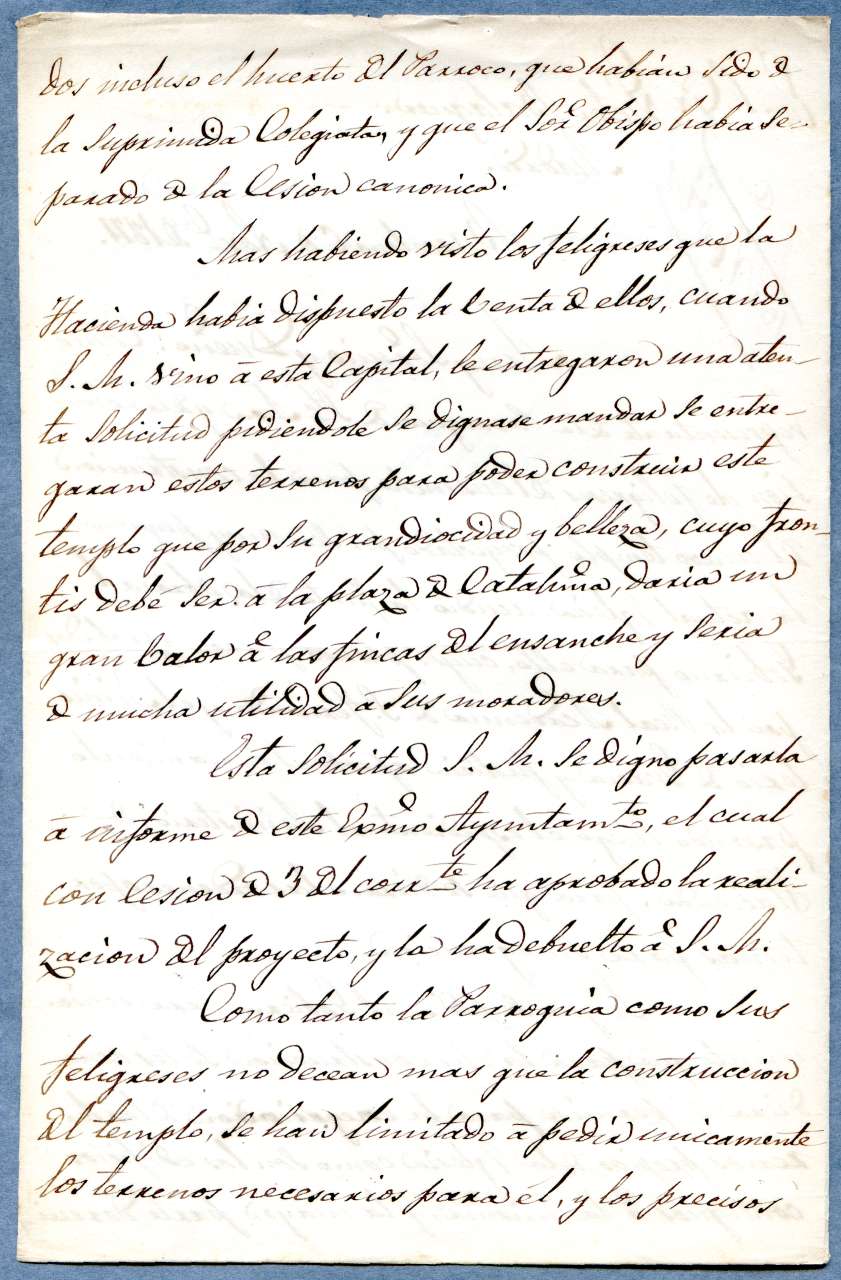 dos incluso el huerto del Parroco, que habian sido de
la suprimida Colegiata, y que el Sor. Obispo habia se-
parado de la Cesion canonica.
Mas habiendo visto los feligreses que la
Hacienda habia dispuesto la Venta de ellos, cuando
S. M. vino á esta Capital, le entregaron una aten-
ta solicitud pidiendole se dignase mandar se entre-
garan estos terrenos para poder construir este
templo que por su grandiocidad y belleza, cuyo fron-
tis debe ser á la plaza de Cataluña, daria un
gran Valor á las fincas del ensanche y seria
de mucha utilidad á sus moradores.
Esta solicitud S. M. se digno pasarla
á informe de este Exmo Ayuntamto, el cual
con Cesion de 3 del corrte ha aprobado la reali-
zacion del proyecto, y la ha debuelto á S. M.
Como tanto la Parroquia como sus
feligreses no decean mas que la construccion
del templo, se han limitado á pedir unicamente
los terrenos necesarios para él, y los precisos